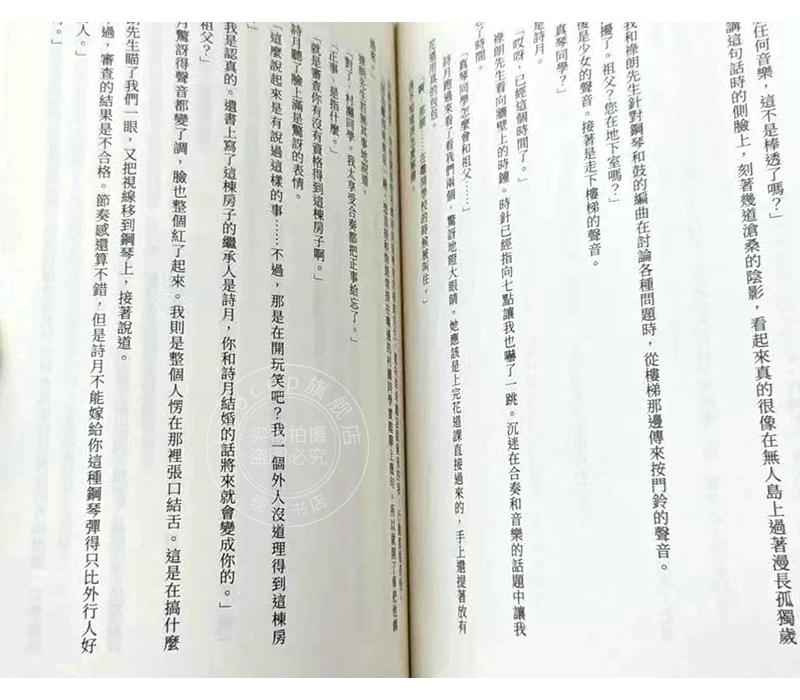 任何音樂，這不是棒透了嗎？」
講這句話時的側臉上，刻著幾道滄桑的陰影，看起來真的很像在無人島上過著漫長孤獨歲
我和祿朗先生針對鋼琴和鼓的編曲在討論各種問題時，從樓梯那邊傳來按門鈴的聲音。
擾了。祖父？您在地下室嗎？」
後是少女的聲音。接著是走下樓梯的聲音。
真琴同學？」
是詩月。
「哎呀，已經這個時間了。」
祿朗先生看向牆壁上的時鐘。時針已經指向七點讓我也嚇了一跳。沉迷在合奏和音樂的話題中讓我
了時間。
「真琴同學怎麼會和祖父……」
詩月跑過來看了看我們兩個，驚訝地瞪大眼睛。她應該是上完花道課直接過來的，手上還提著放有
花道用具的包包。
在離開學校的時候被叫住。」
祿朗先生若無其事地說道。
「對了，村瀨同學。我太享受合奏都把正事給忘了。」
「正事，是指什麼？」
「就是審查你有沒有資格得到這棟房子啊。」
詩月聽了臉上滿是驚訝的表情。
「這麼說起來是有說過這樣的事……不過，那是在開玩笑吧？我一個外人沒道理得到這棟房
我是認真的。遺書上寫了這棟房子的繼承人是詩月，你和詩月結婚的話將來就會變成你的。」
祖父？」
月驚訝得聲音都變了調，臉也整個紅了起來。我則是整個人愣在那裡張口結舌。這是在搞什麼
先生瞄了我們一眼，又把視線移到鋼琴上，接著說道。
過，審查的結果是不合格。節奏感還算不錯，但是詩月不能嫁給你這種鋼琴彈得只比外行人好
人。」
旗舰店
实物拍摄
盗图必究